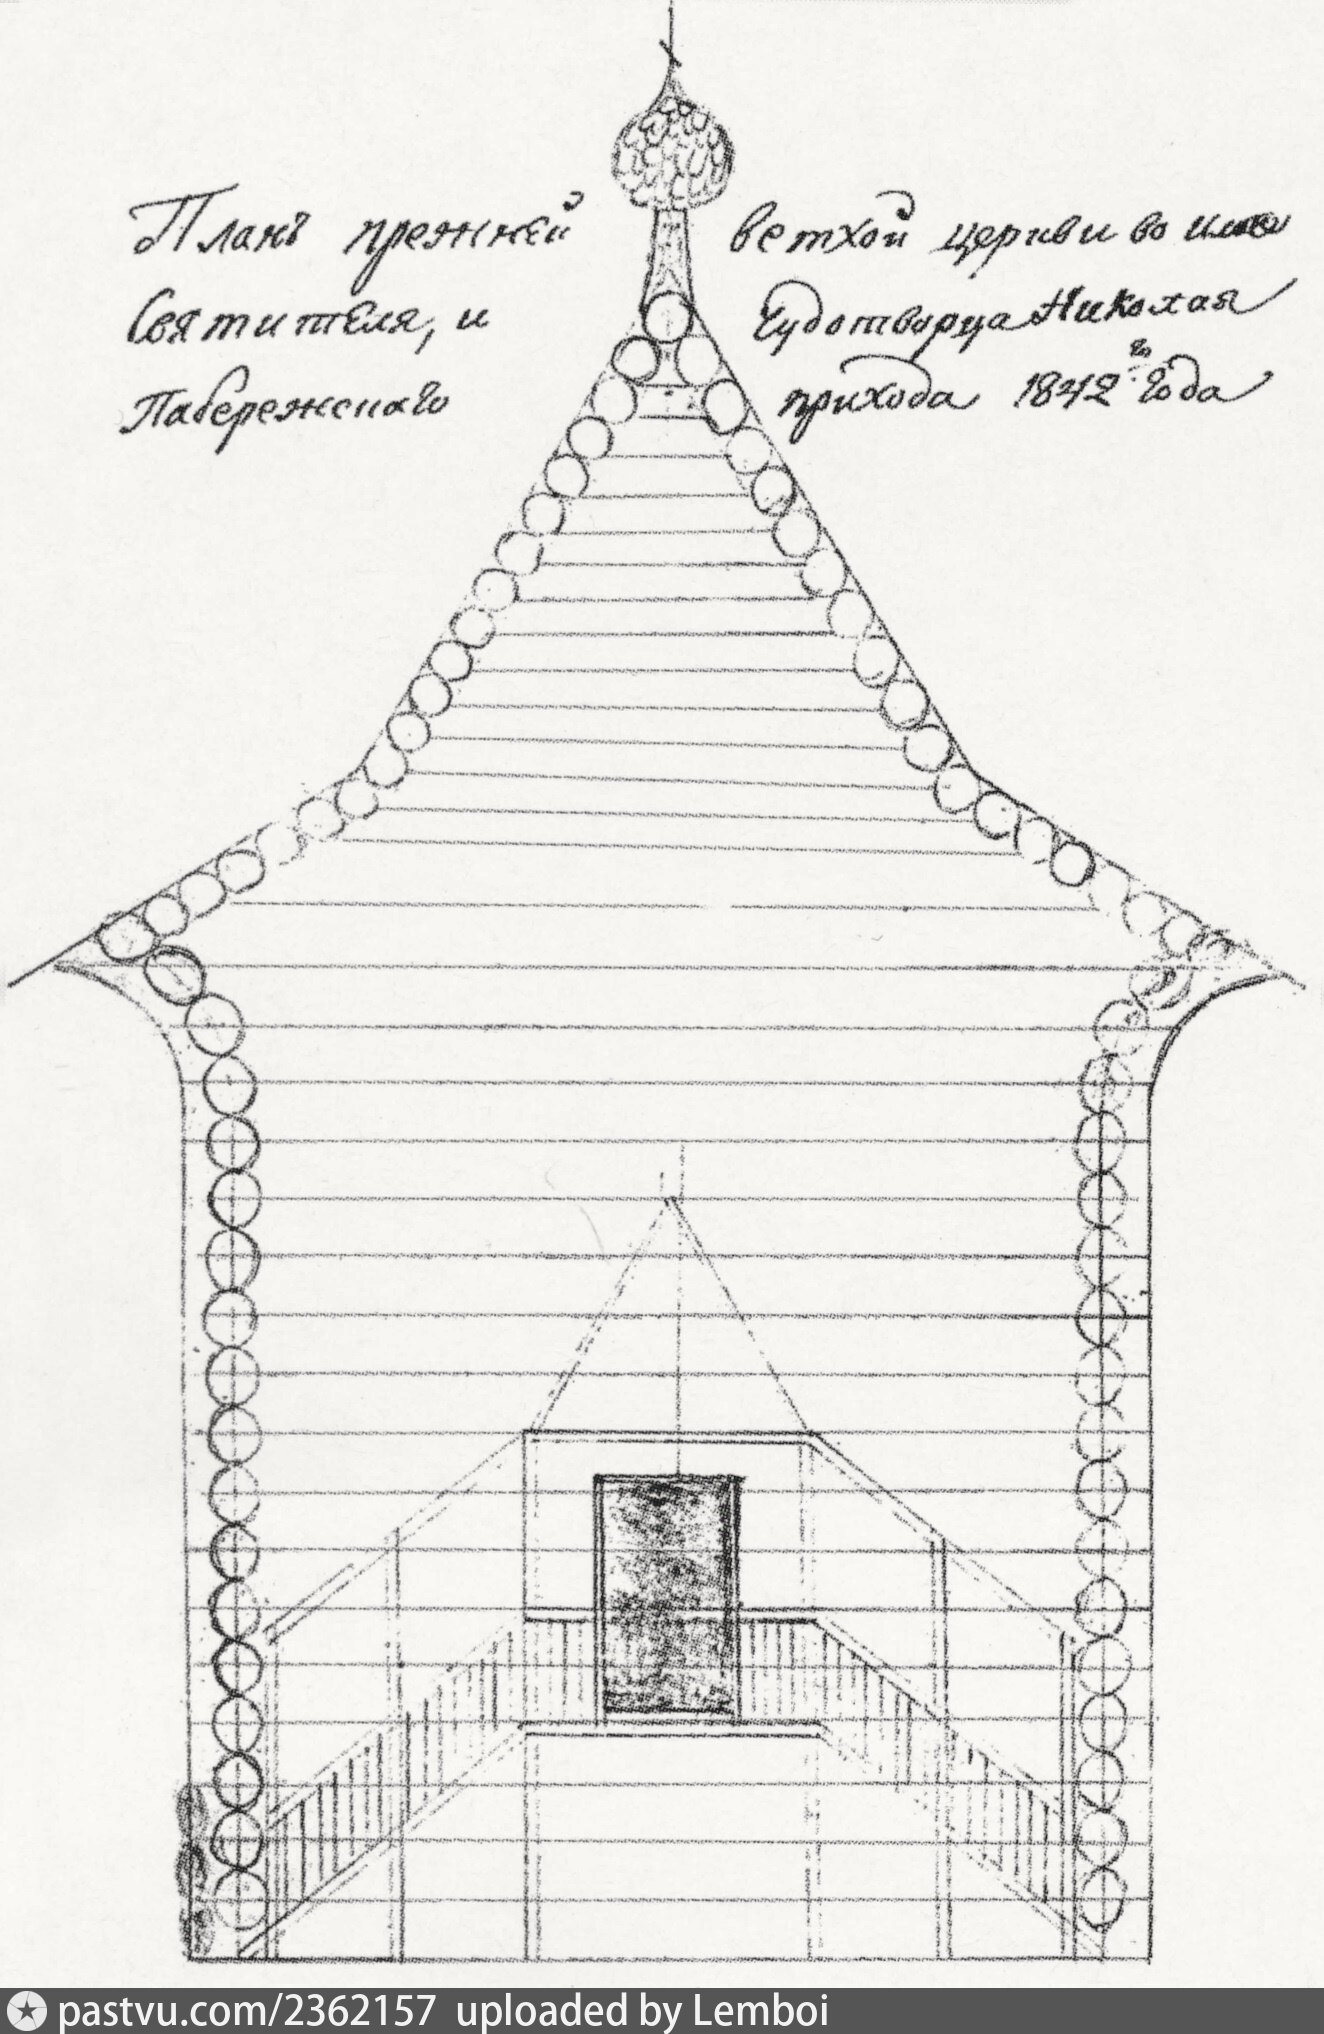 Планъ прежней ветхой церкви во имя
Святителя, и Чудотворца Николая
Пабережскаго прихода 1842 го года
pastvu.com/2362157 uploaded by Lemboi